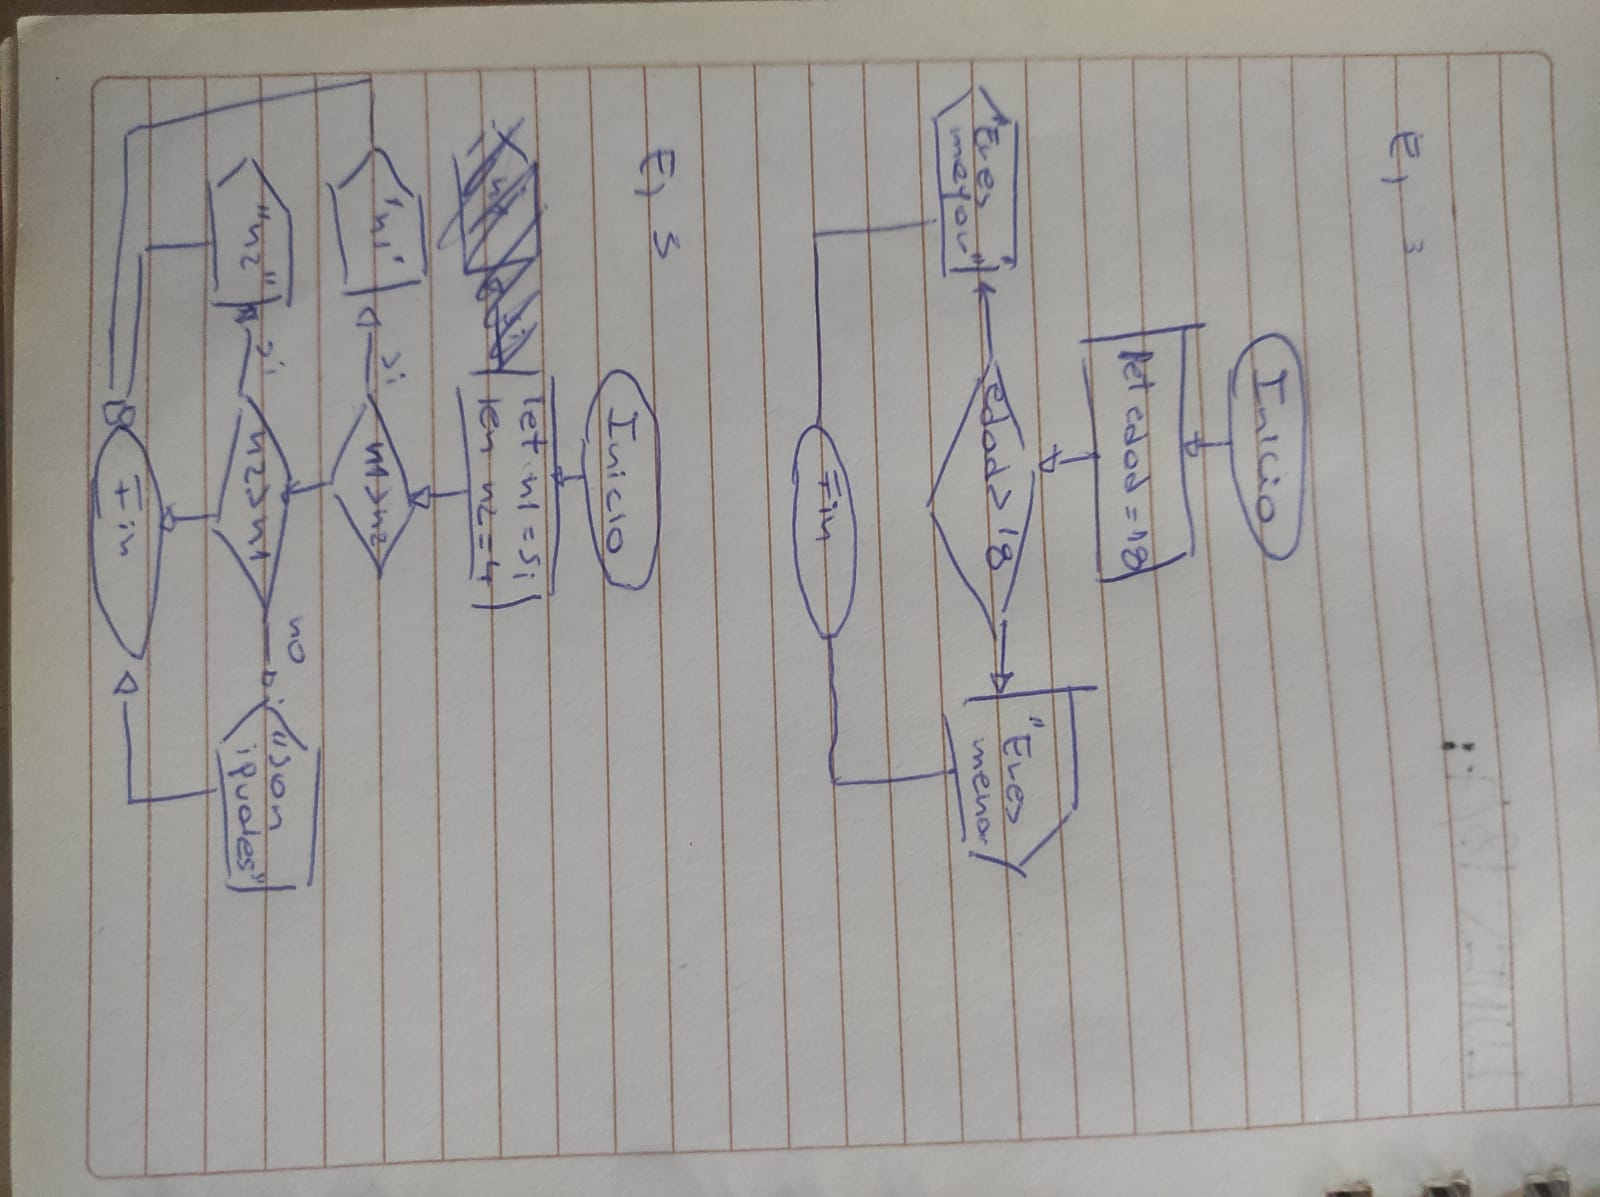 Ej 3
Inicio
let edad = 18
edad > 18
"Eres
mayor"
"Eres
menor"
Fin
Ej 5
Inicio
let n1 = 5;
len n2 = 4
n1 > n2
si
"n1"
n2 > n1
si
"n2"
no
"Son
iguales"
Fin